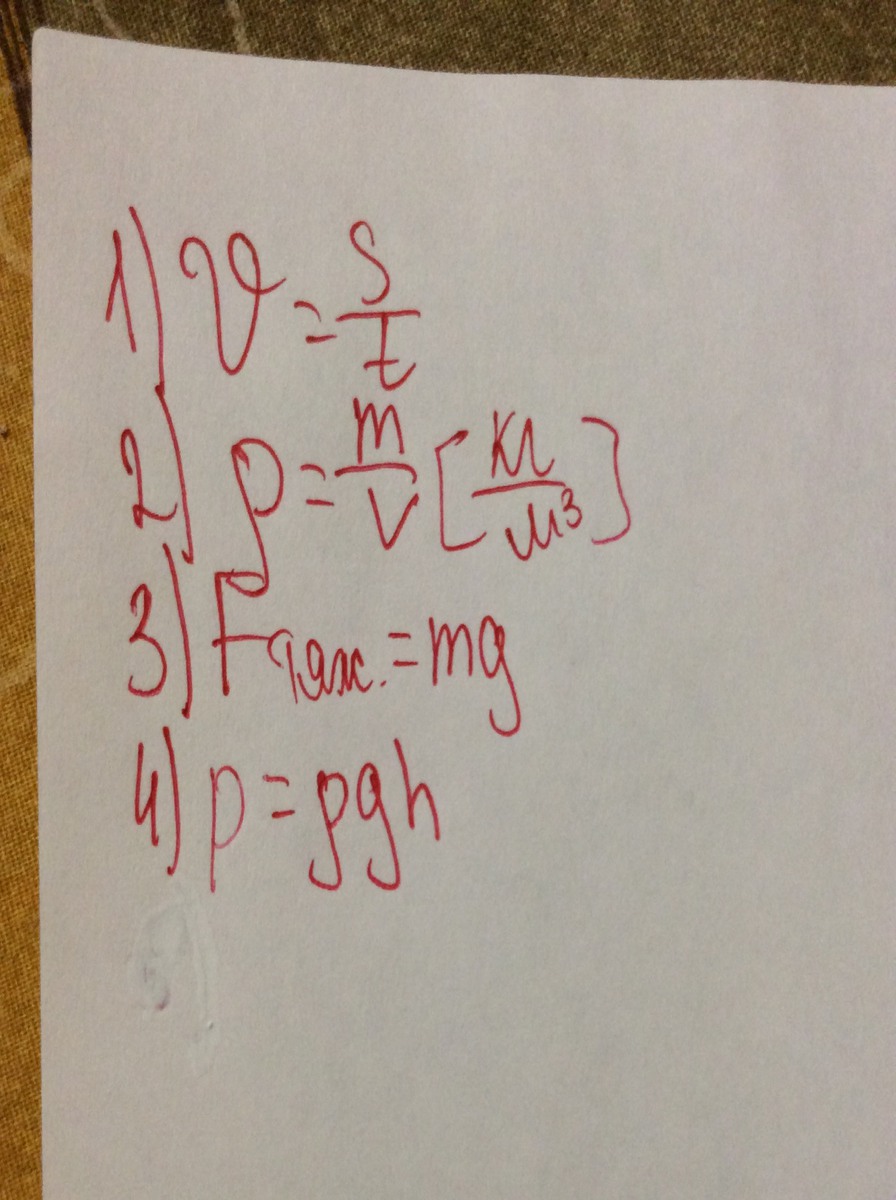 1) υ = S/t
2) ρ = m/V [кг/м³]
3) Fтяж. = mg
4) p = ρgh